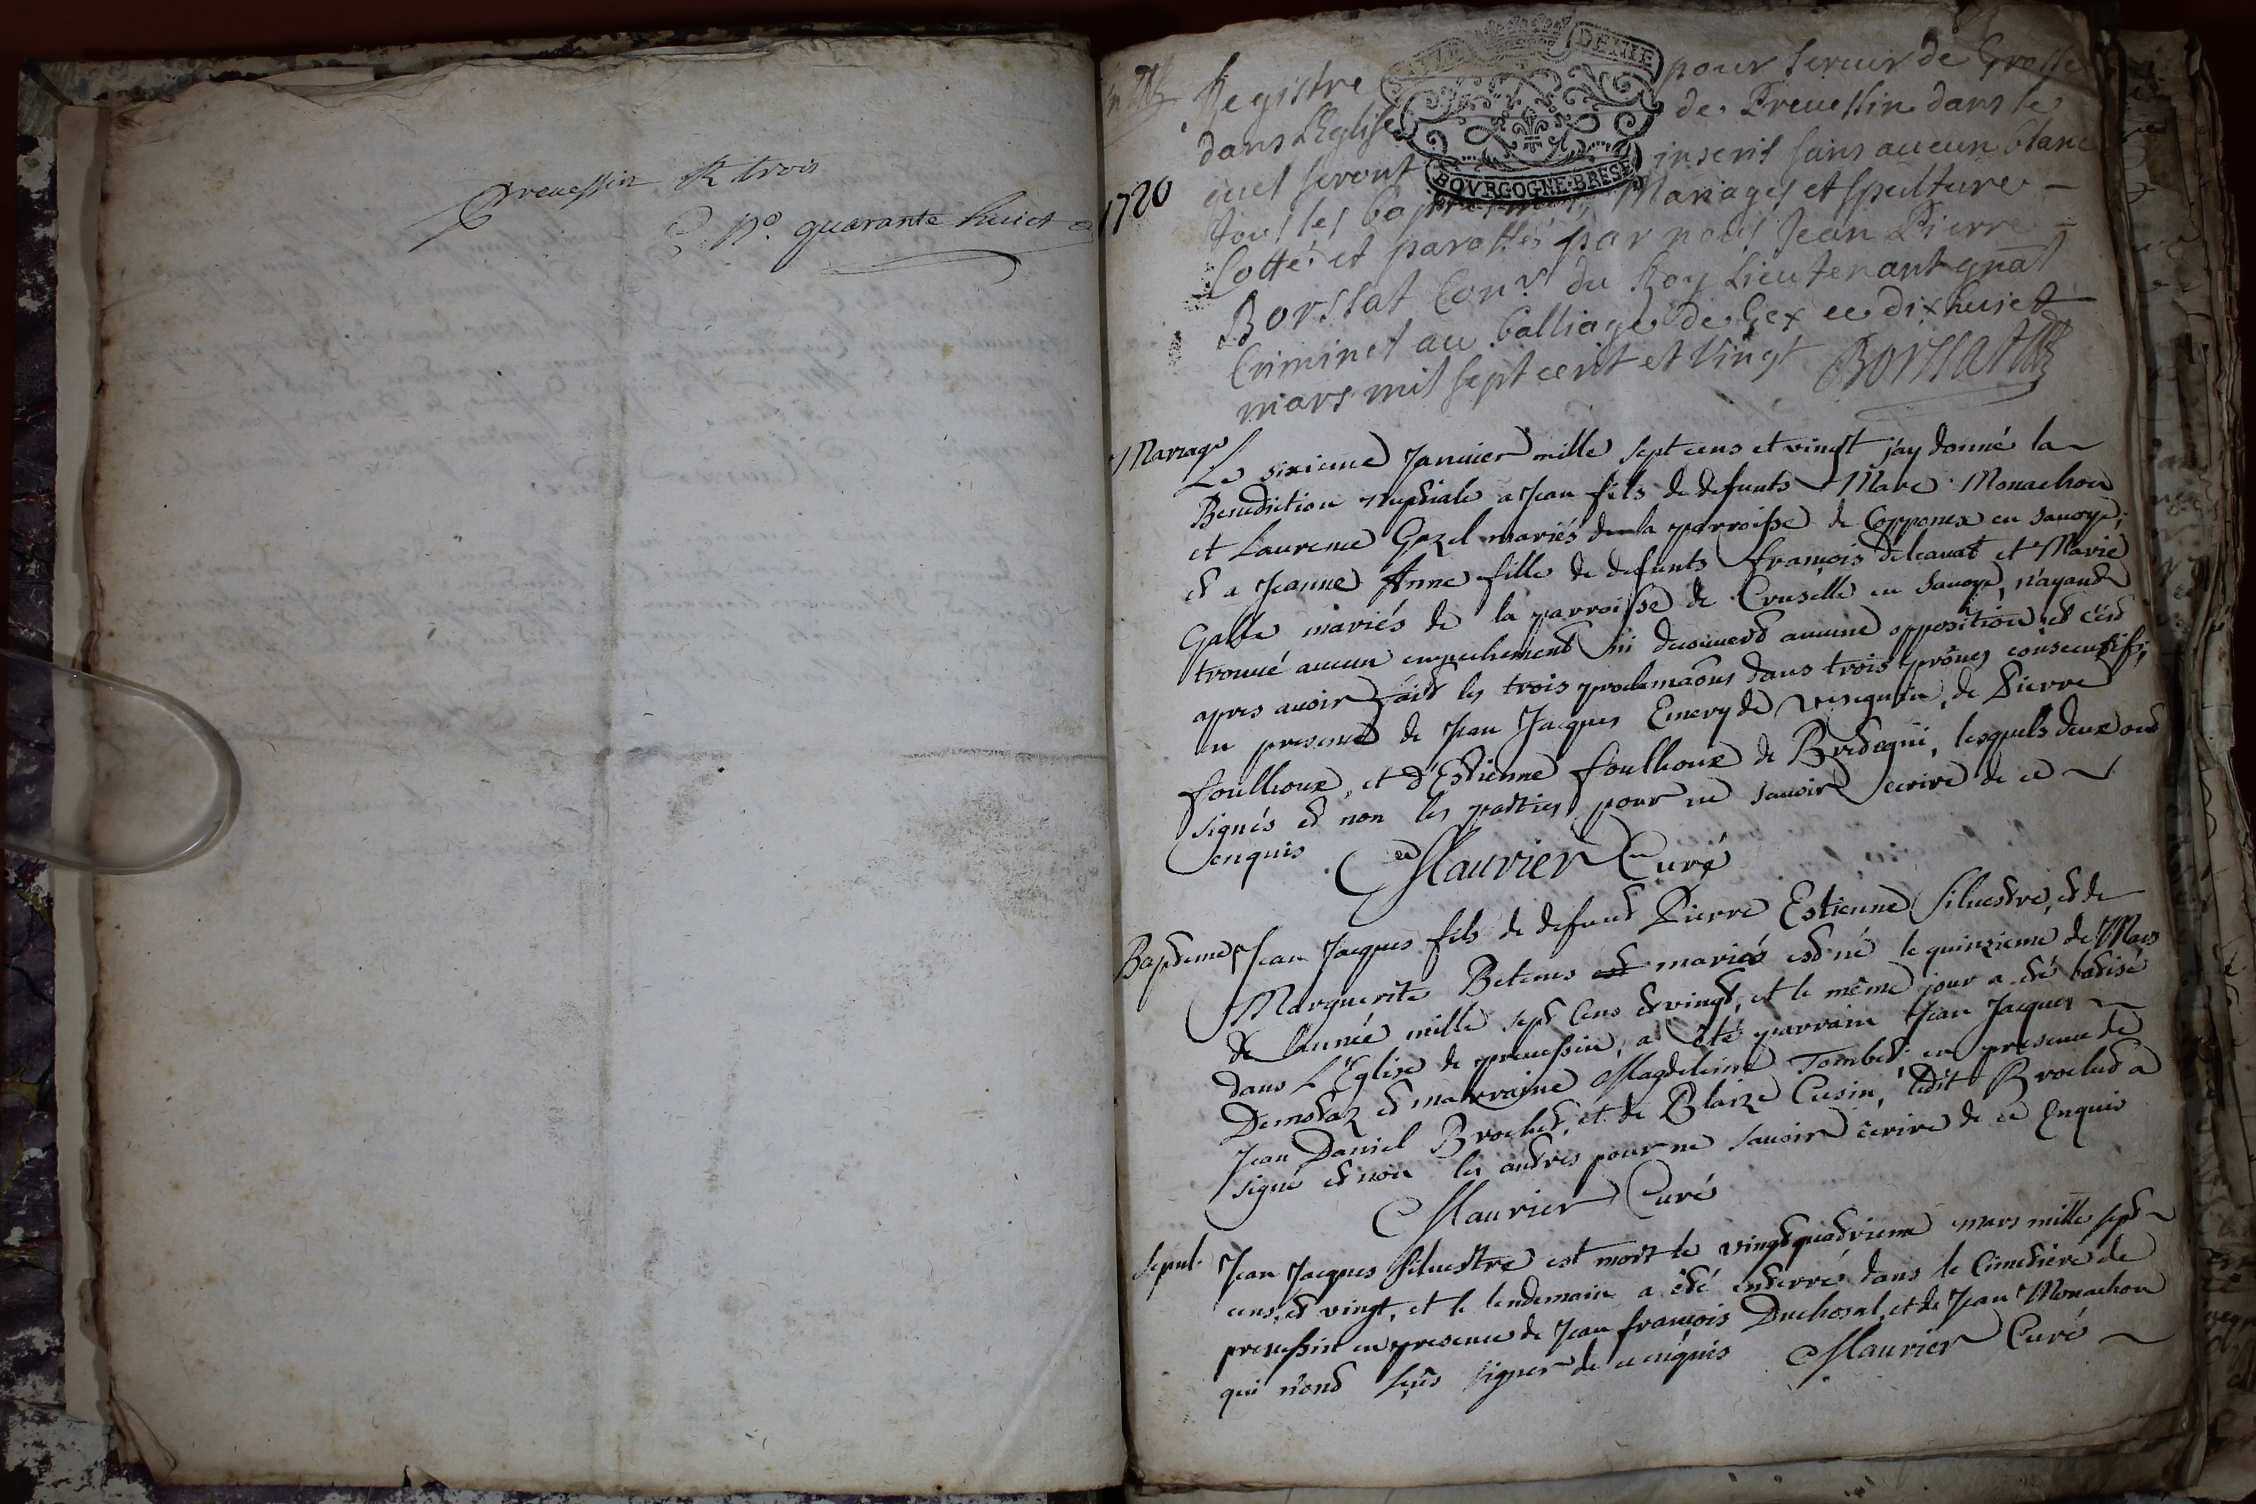 Preuessin R trois
N.o quarante huict
Registre pour seruir de Grosse
dans L'Eglise de Preuessin dans le
quel seront inscrit sans aucun blanc
1720
tous les baptesmes, Mariages et sepulture
Cotté et paraffés par nous Jean Pierre
Borssat Con.er du Roy Lieutenant gnãl
Criminel au balliage de Gex ce dixhuict
mars mil sept cent et Vingt Borssat
DEMIE
BOVRGOGNE·BRESE
Mariage
Le sixieme Januier mille sept cens et vingt j'ay donné la
Benediction nuptiale a Jean fils de defunts Marc Monachon
et Laurence Gazel mariés de la parroisse de Copponex en sauoye,
et a Jeanne Anne fille de defunts françois delauat et Marie
Galle mariés de la parroisse de Cruselle en sauoye, n'ayant
trouué aucun empechement ni decouuert aucune opposition et c'est
apres auoir fait les trois proclamãons dans trois prônes consecutifs,
en presence de Jean Jacques Emery de vesegnin, de Pierre
foullioux, et d'Estienne foullioux de Bretegni, lesquels deux ont
signés et non les parties pour ne sauoir ecrire de ce
enquis Maurier Curé
Bapteme
Jean Jacques fils de defunt Pierre Estienne Siluestre, et de
Marguerite Betems et mariés est né le quinzieme de Mars
de l'année mille sept cens et vingt, et le même jour a eté batisé
dans L'Eglise de preuessin, a été parrain Jean Jacques
Demotaz et marraine Magdeleine Tombet en presence de
Jean Daniel Brochet, et de Blaize Cusin, ledit Brochet a
signé et non les autres pour ne sauoir ecrire de ce Enquis
Maurier Curé
Sepul.
Jean Jacques Siluestre est mort le vingtquatrieme mars mille sept
cens, et vingt, et le lendemain a eté enterré dans le Cimetiere de
preuessin en presence de Jean françois Duchosal, et de Jean Monachon
qui n'ont sçus signer de ce enquis Maurier Curé